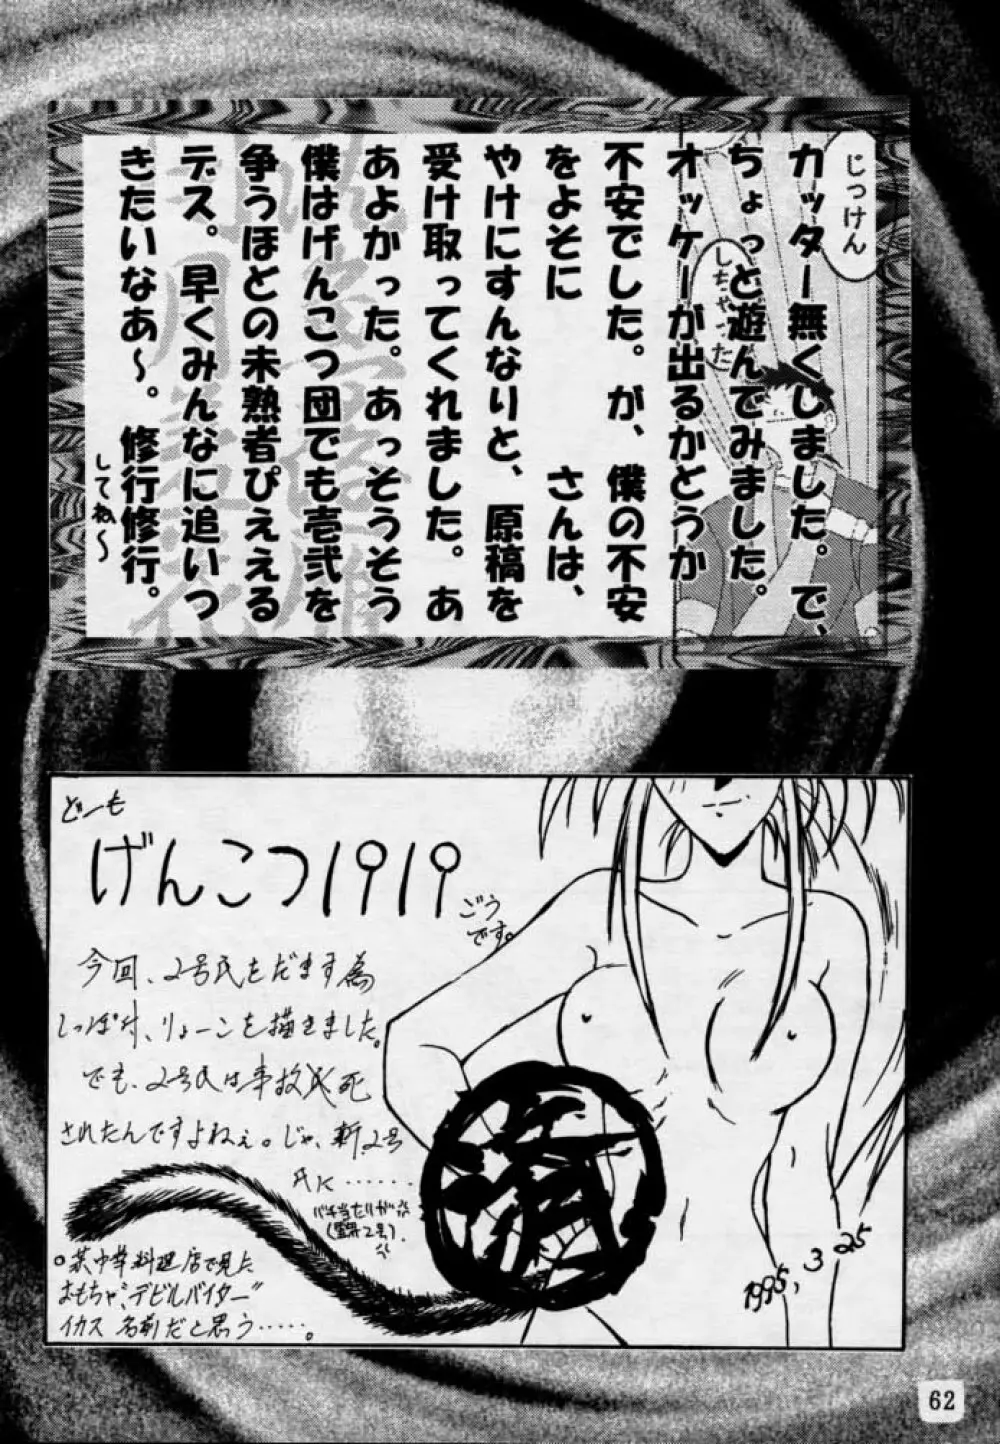 じっけん
しちゃった
カッター無くしました。で、
ちょっと遊んでみました。
オッケーが出るかどうか
不安でした。が、僕の不安
をよそに　　　さんは、
やけにすんなりと、原稿を
受け取ってくれました。あ
あよかった。あっそうそう
僕はげんこつ団でも壱弐を
争うほどの未熟者ぴええる
デス。早くみんなに追いつ
きたいなあ〜。修行修行。
してね〜
どーも
げんこつ1919
ごう
です。
今回、2号氏をだます為
しっぽ付、りょーこを描きました。
でも、2号氏は事故死
されたんですよねぇ。じゃ、新2号
氏に……
バチ当たりが
済
1995, 3 25
。某中華料理店で見た
おもちゃ"デビルバイター"
イカス名前だと思う……。
62